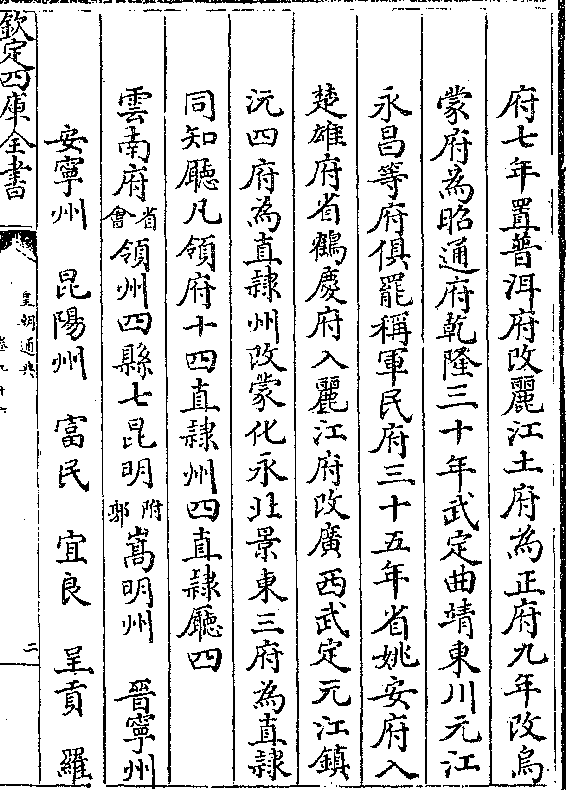 府七年置普洱府改麗江土府為正府九年改烏
蒙府為昭通府乾隆三十年武定曲靖東川元江
永昌等府俱罷稱軍民府三十五年省姚安府入
楚雄府省鶴慶府入麗江府改廣西武定元江鎮
沅四府為直隸州改蒙化永北景東三府為直隸
同知廳凡領府十四直隸州四直隸廳四
雲南府省會領州四縣七昆明附郭嵩明州 晉寧州
安寧州 昆陽州 富民 宜良 呈貢 羅
欽定四庫全書
皇朝通典
二